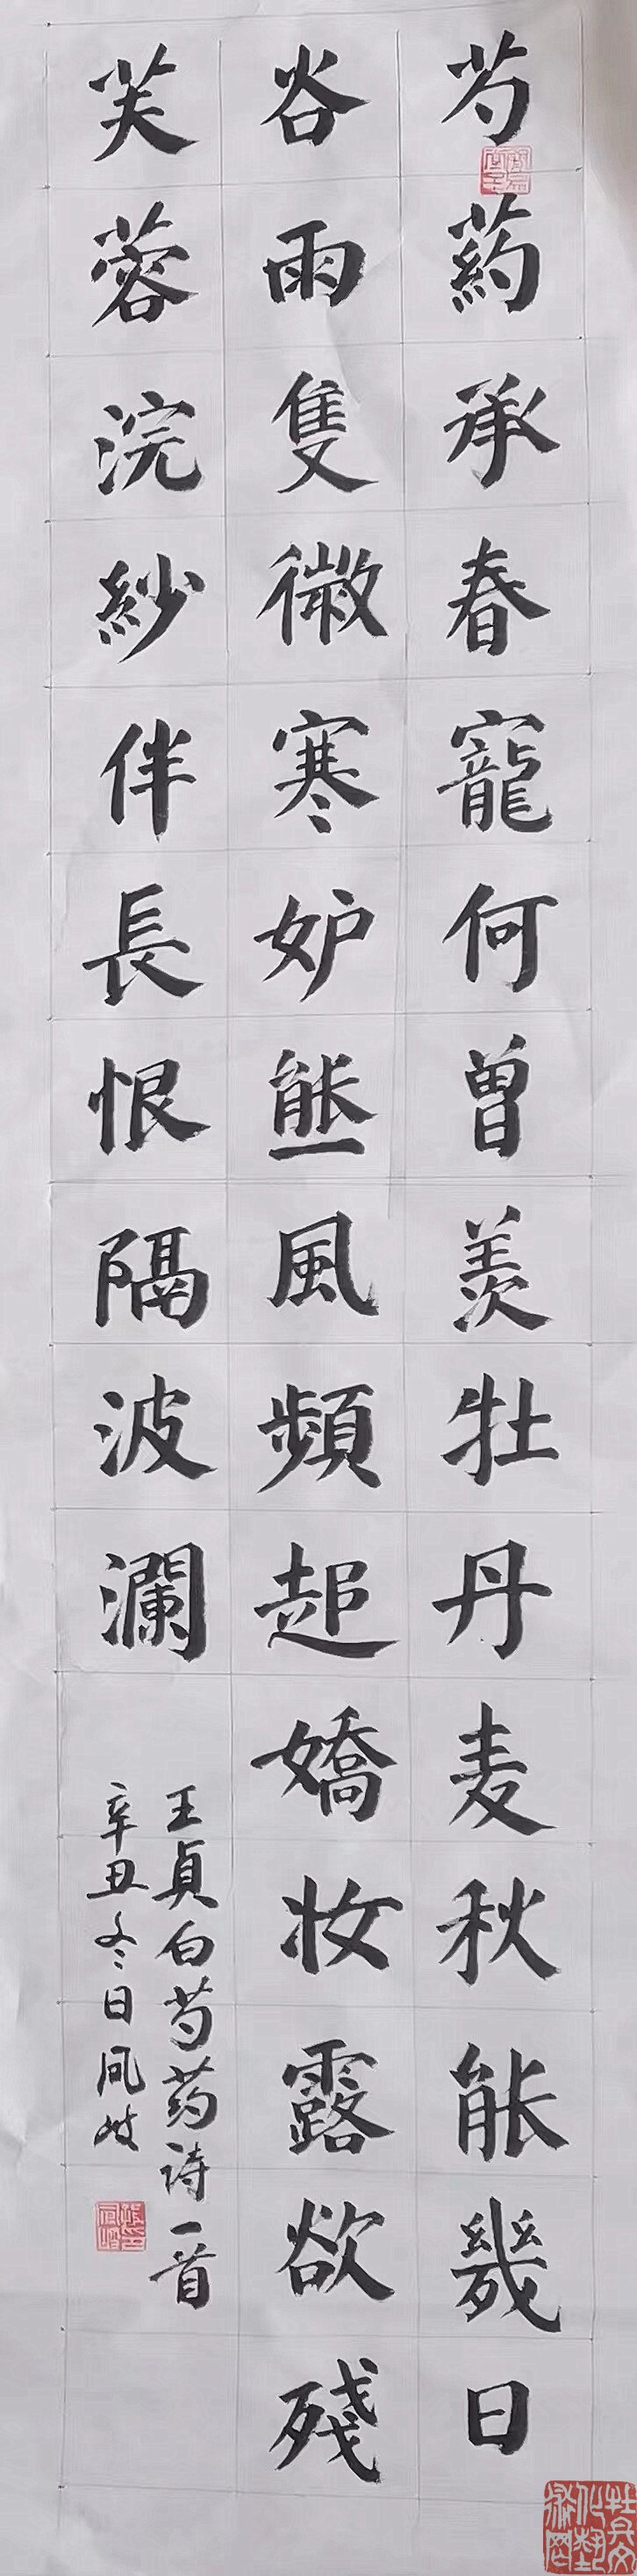 芍葯承春寵何曾羨牡丹麦秋能幾日
谷雨隻微寒妒態風頻起嬌妆露欲殘
芙蓉浣紗伴長恨隔波瀾
王貞白芍药诗一首
辛丑冬日凤